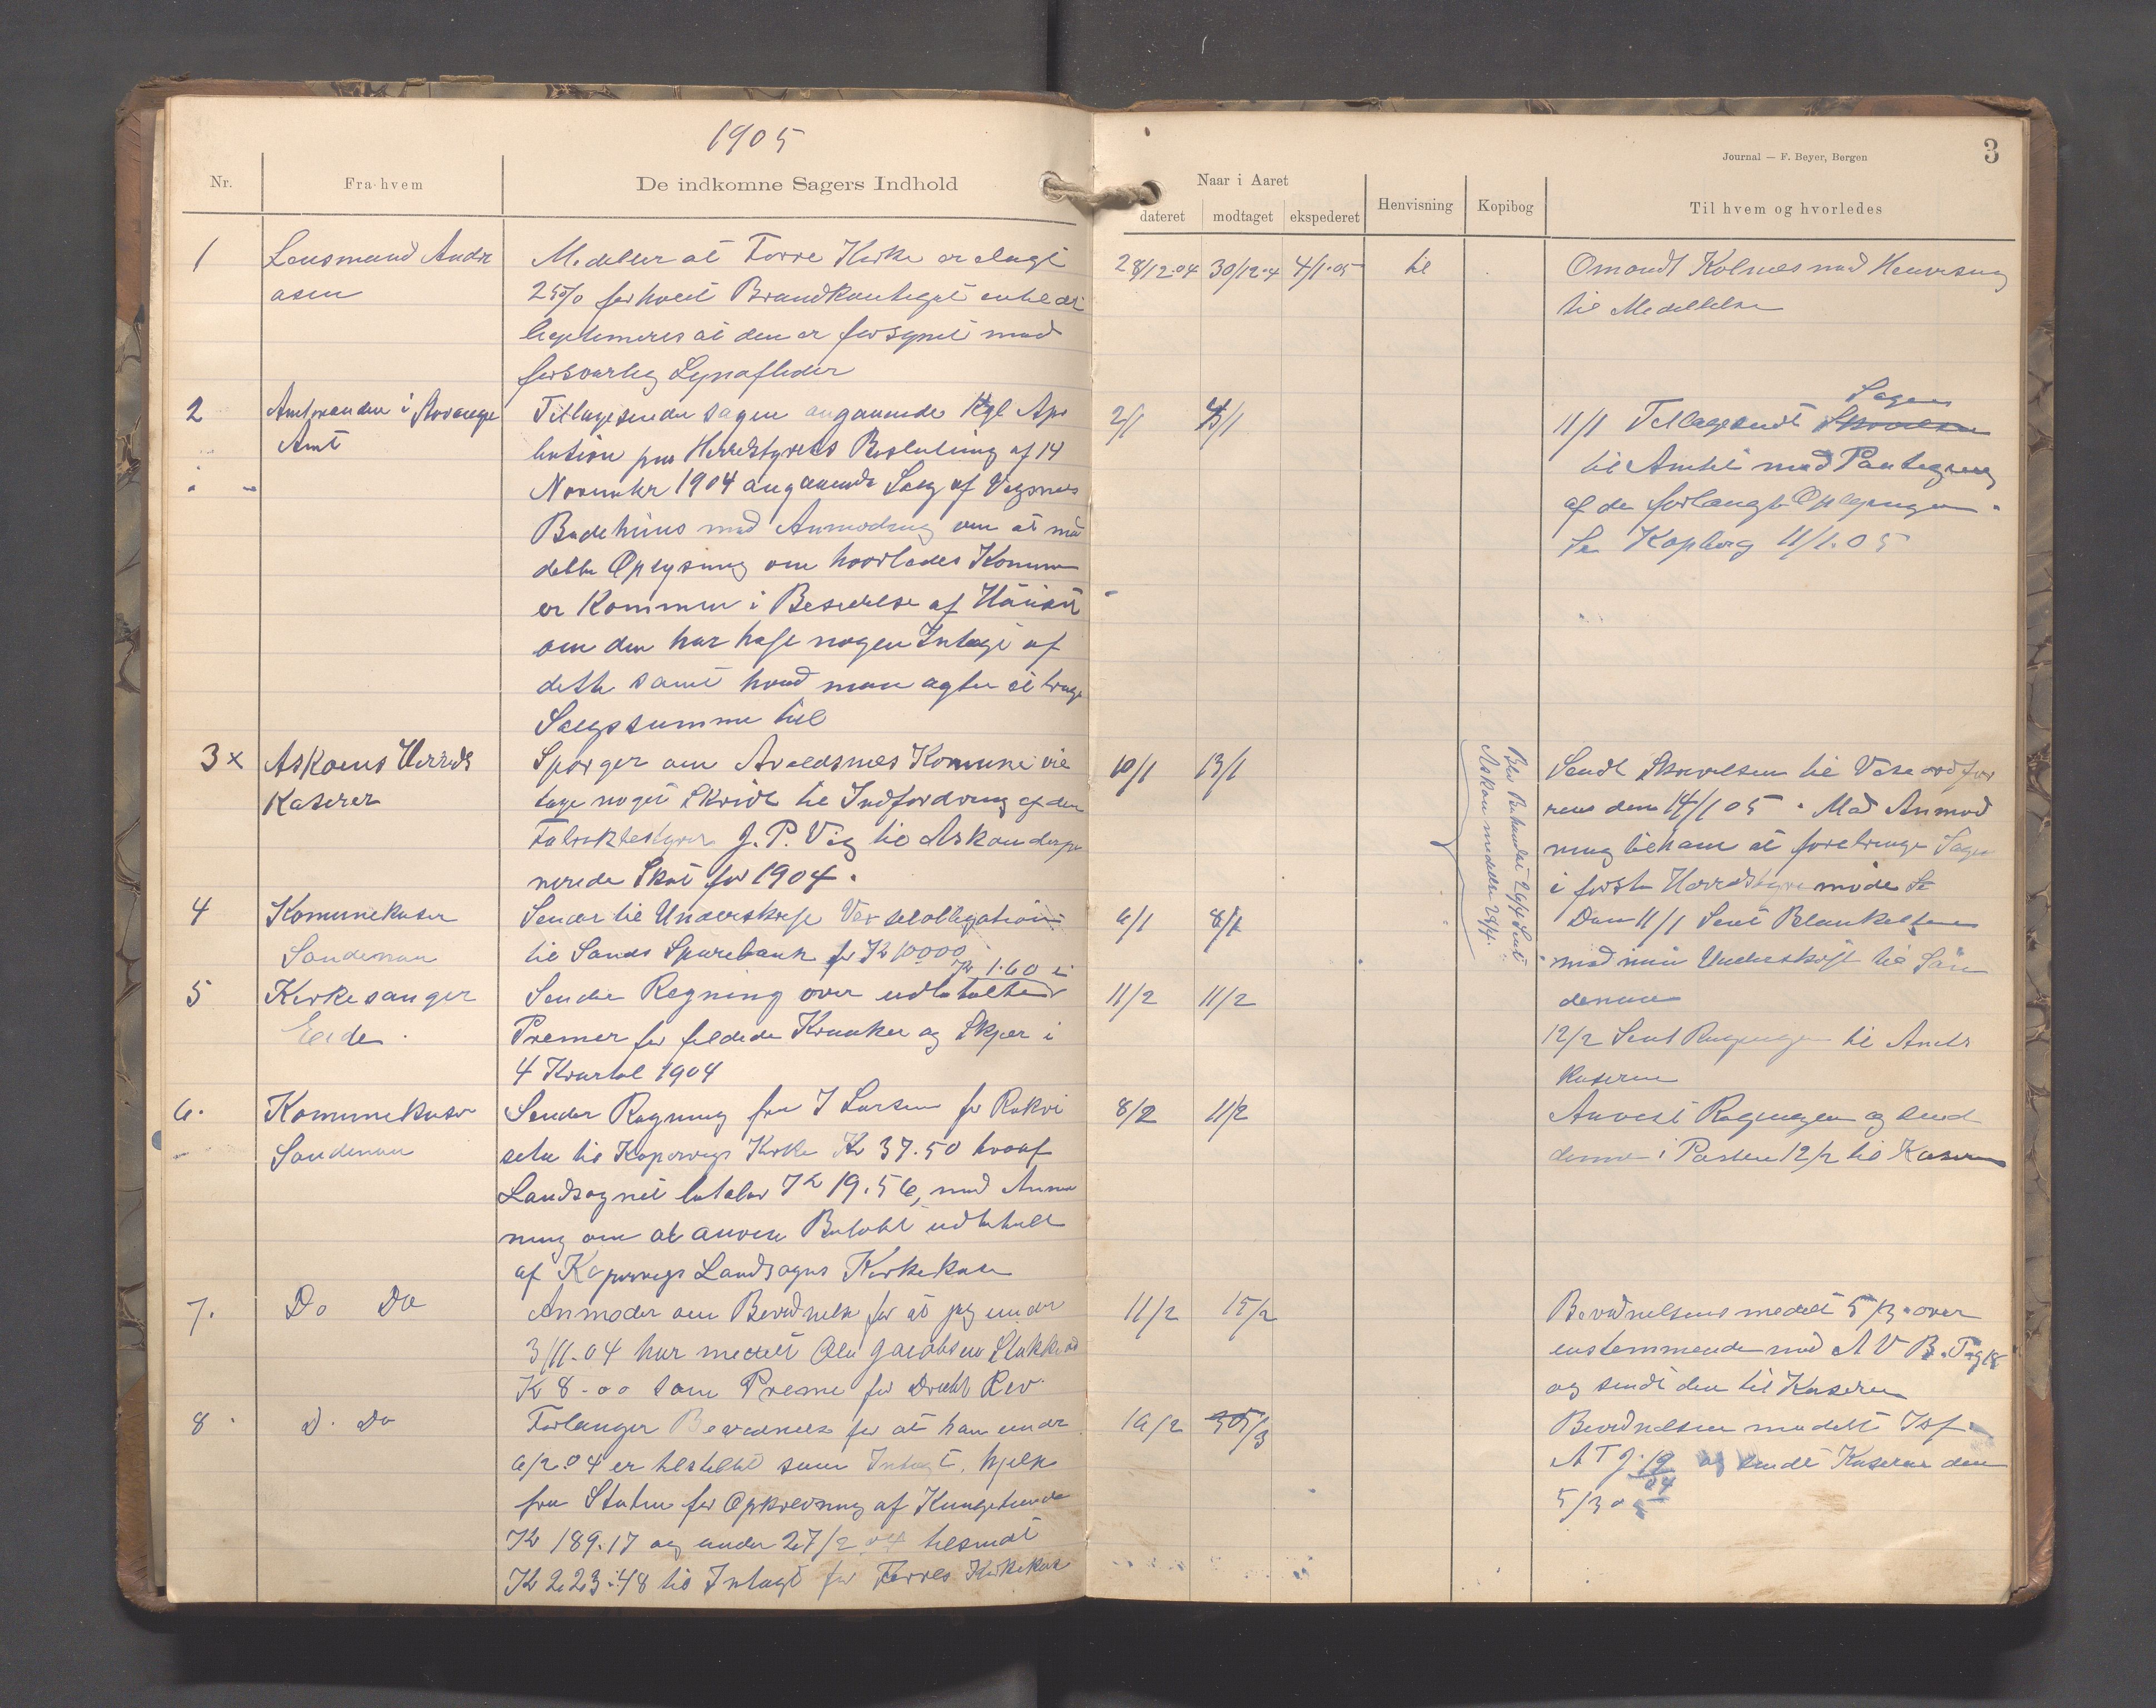 1905
Nr.
Fra hvem
De indkomne Sagers Indhold
1
Lensmand Andre
asen
Meddeler at Førre Kirke er ilagt
25% forhøiet Brandkontigent indtil det
legitimeres at den er forsynet med
forsvarlig Lynafleder
2
Amtmanden i Stavanger
Amt
Tilbagesender sagen angaaende Kgl Apro
bation paa Herredstyrets Beslutning af 14
November 1904 angaaende Salg af Vigsnes
Badehuus med Anmodning om at med
dele Oplysning om hvorledes Kommun
er kommen i Besiddelse af Huuset
om den har haft nogen Indtægt af
dette samt hvad man agter at bruge
Salgssummen til
3 x
Askøens Herreds
Kaserer
Spørger om Avaldsnes Komune vil
tage noget Skridt til Indfordring af den
Fabrikbestyrer J. P. Vig til Askøen
Skat for 1904.
4
Komunekaser
Sandenan
Sender til Underskrift Vexselobligation
til Sands Sparebank for Kr 10000
5
Kirkesanger
Eide
Kr 1.60 i
Sender Regning over udbetalte
Premier for fældede Kraaker og Skjær i
4 Kvartal 1904
6.
Komunekaser
Sandenan
Sender Regning fra J Larsen for Rekvi
siter til Kopervigs Kirke Kr 37.50 hvoraf
Landsognet betaler Kr 19.56, med Anmo
ning om at anvise Beløbet udbetalt
af Kopervigs Landsogns Kirkekasse
7.
Do Do
Anmoder om Bevidnelse for at jeg under
3/11-04 har meddelt Ole Jacobsen
Kr 8-00 som Premie for dræbt Rev.
8
D. Do
Forlanger Bevidnelse for at han under
6/2 04 er tilstillet som Indtægt, hjelp
fra Staten for Opkrevning af
Kr 189.17 og under 27/2 04 tilsendt
Kr 223.48 til Indtægt for Førres Kirkekas
Journal — F. Beyer, Bergen
3
Naar i Aaret
dateret
modtaget
ekspederet
Henvisning
Kopibog
Til hvem og hvorledes
28/12.04 30/12.4 4/1.05
til
Omondt Kolnes med Henvisning
til Meddelelse
2/1
Sagen
11/1 Tilbagesendt
til Amtet med Paategning
af de forlangte Oplysninger.
Se Kopibog 11/1.05
10/1 13/1
Blev Behandlet 26/4 Sent
Askøen meddelelse 28/4.
Sendt Skrivelsen til Viseordfør
eren den 14/1 05. Med Anmod
ning til ham at forebringe Sagen
i første Herredstyremøde
6/1 8/1
Den 11/1 Sent Blanketten
med min Underskrift til San
denan
11/2 11/2
12/2 Sent Regningen til Amts
kaseren
8/2 11/2
Anvist Regningen og send
denne i Posten 12/2 til Kaseren
11/2 15/2
Bevidnelsens meddelt 5/3. over
enstemmende med A V B.
og sendt den til Kaseren
16/2
Bevidnelsen meddelt
A T J. 19
04
og sendt Kaserer den
5/3 0